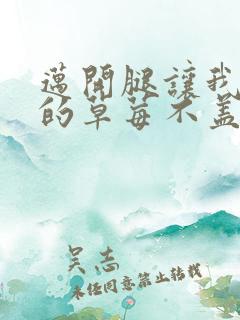 邁開腿讓我
的草莓不蓋
吴志
未经同意禁止转载